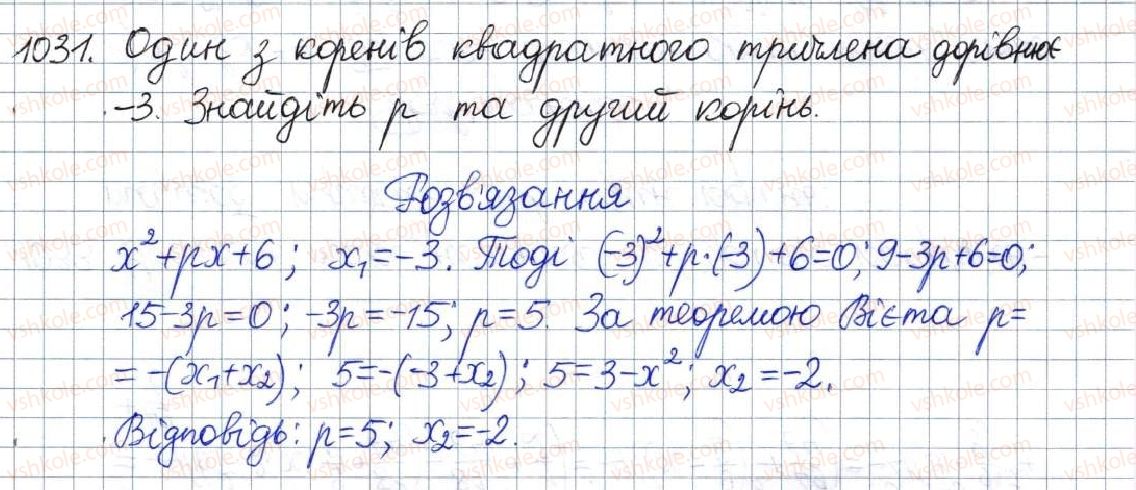 1031. Один з коренів квадратного тричлена дорівнює
-3. Знайдіть p та другий корінь.
Розв'язання
x²+px+6; x₁=-3. Тоді (-3)²+p·(-3)+6=0; 9-3p+6=0;
15-3p=0; -3p=-15; p=5. За теоремою Вієта p=
=-(x₁+x₂); 5=-(-3+x₂); 5=3-x²; x₂=-2.
Відповідь: p=5; x₂=-2.